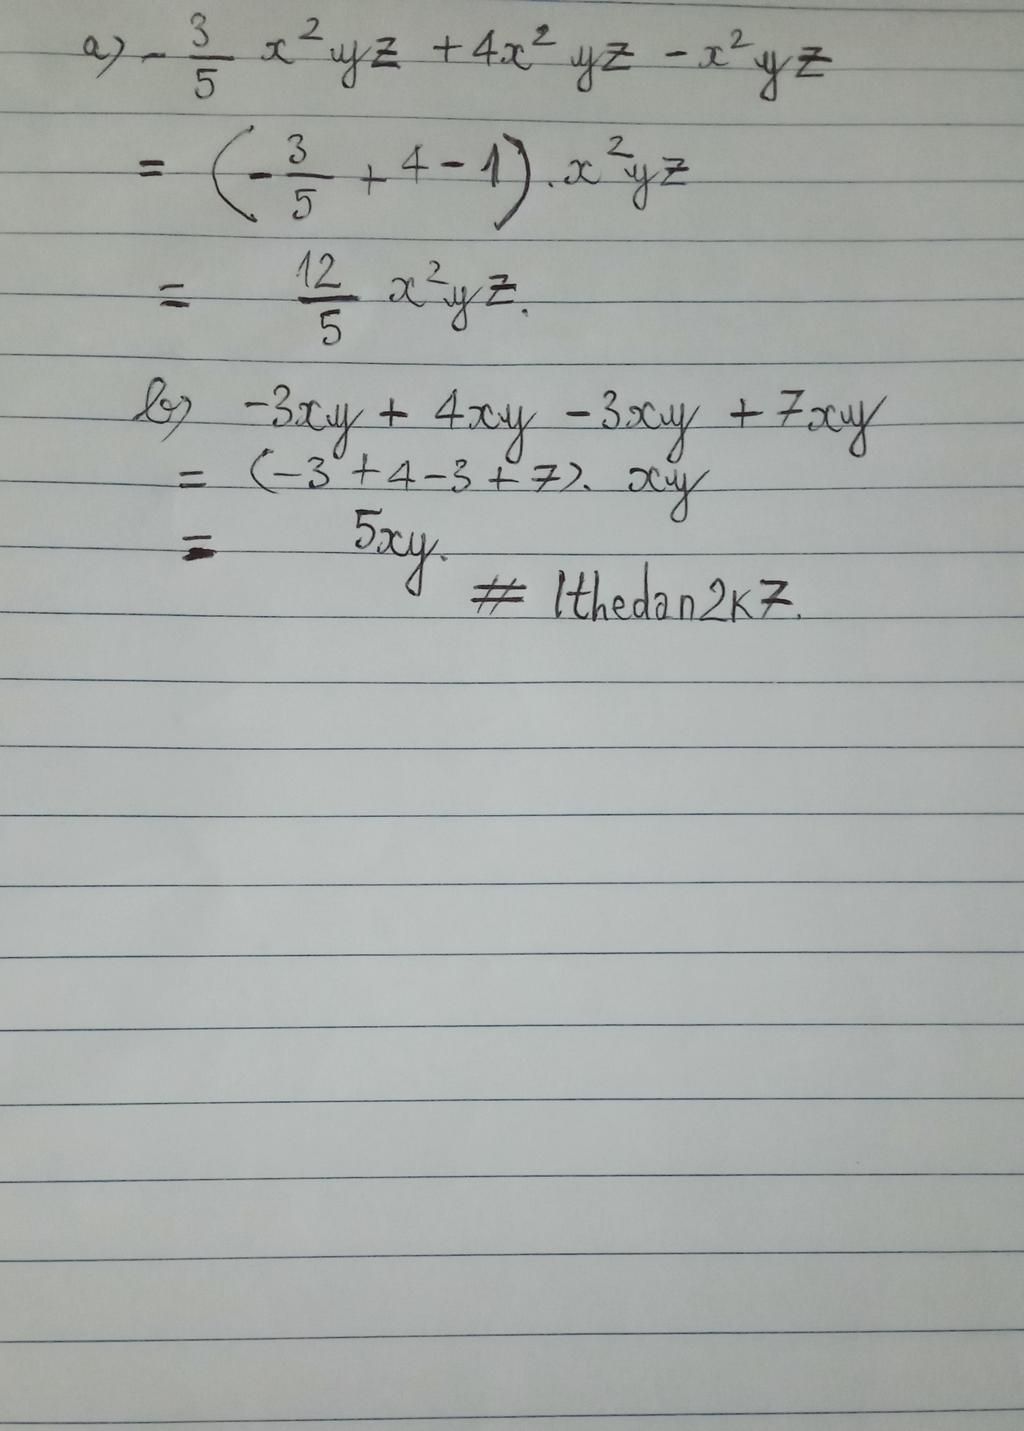 a) - 3/5 x² yz + 4x² yz - x² yz
= (- 3/5 + 4 - 1) . x² yz
= 12/5 x² yz.
b) -3xy + 4xy - 3xy + 7xy
= (-3 + 4 - 3 + 7). xy
= 5xy.
# 1thedan2k7.